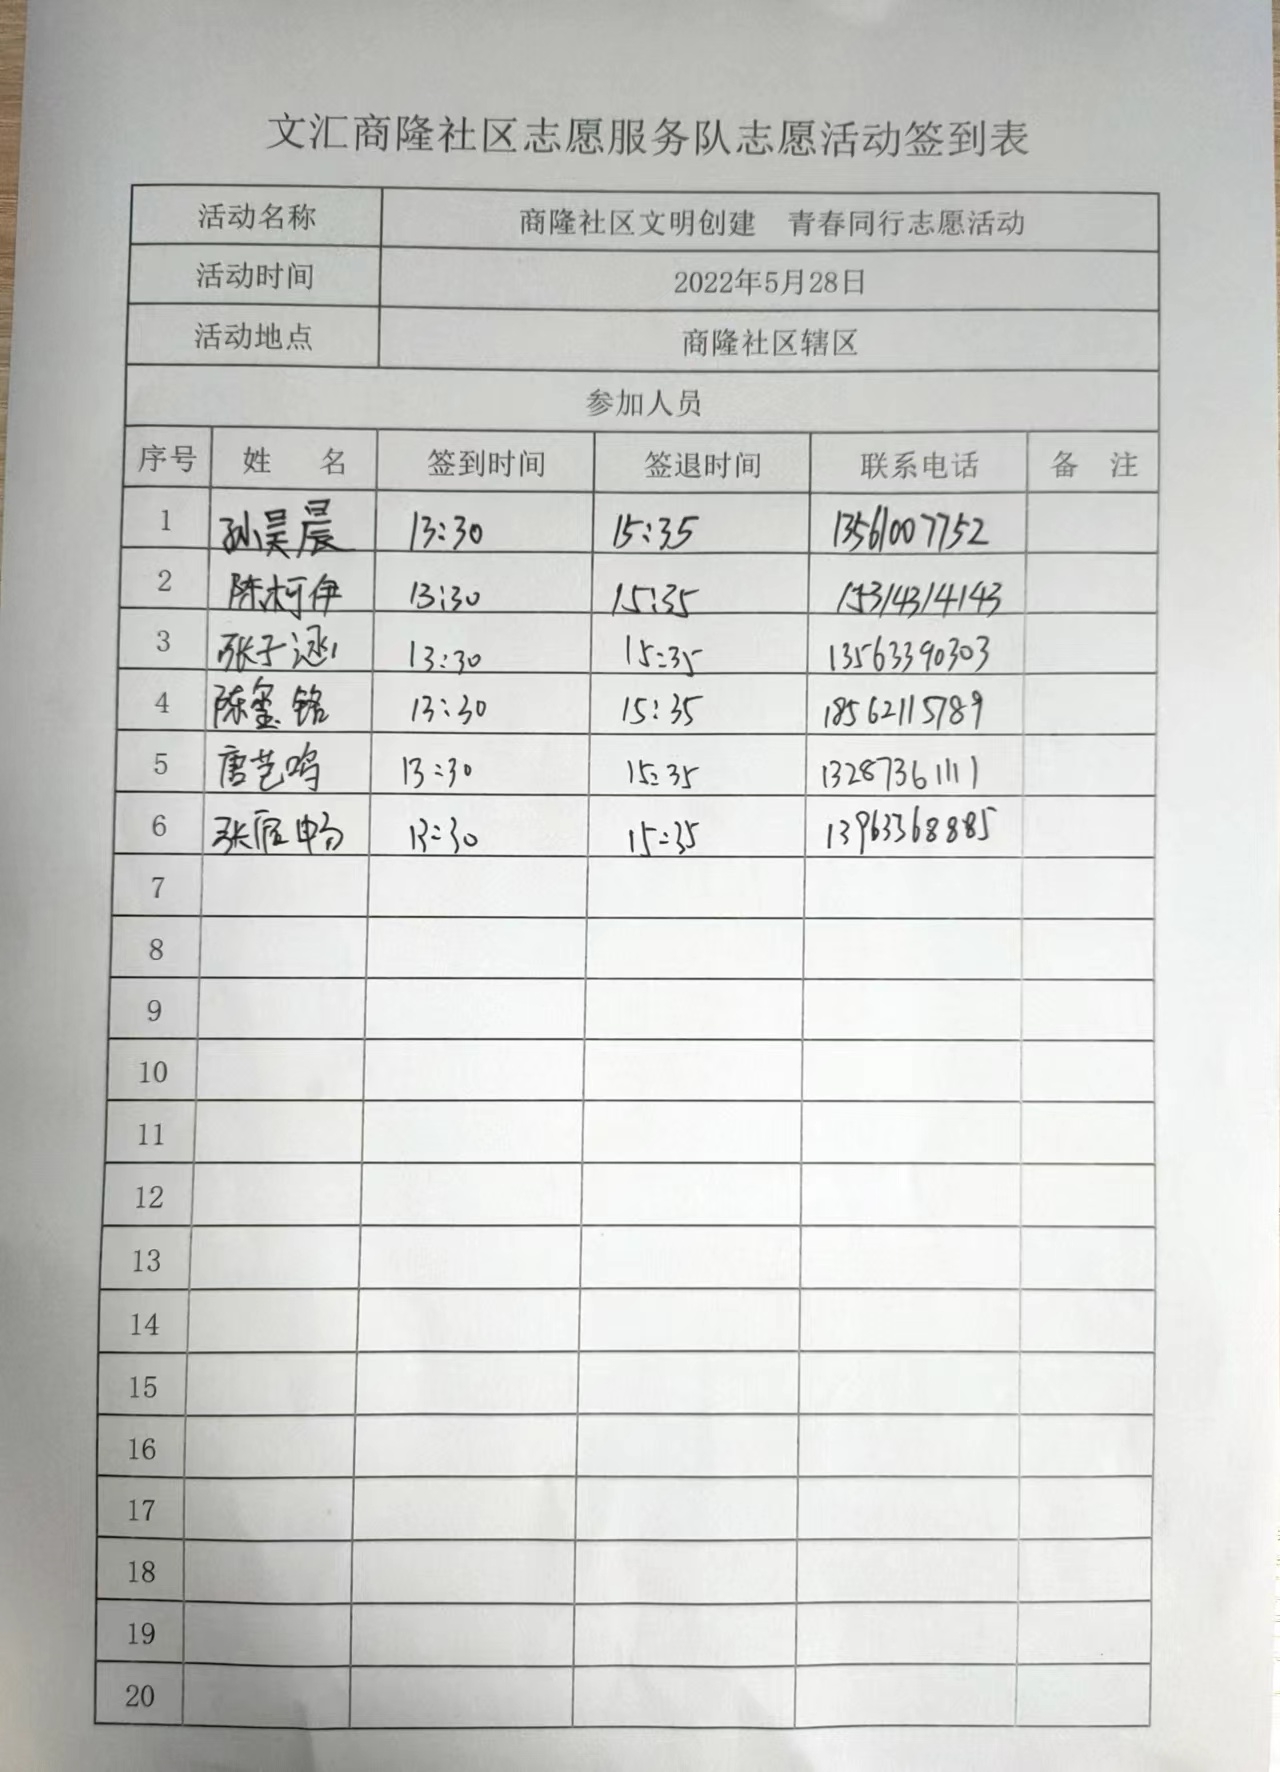 文汇商隆社区志愿服务队志愿活动签到表
活动名称 商隆社区文明创建 青春同行志愿活动
活动时间 2022年5月28日
活动地点 商隆社区辖区
参加人员
序号 姓 名 签到时间 签退时间 联系电话 备 注
1 孙昊晨 13:30 15:35 13561007752
2 陈柯伊 13:30 15:35 15314314143
3 张子涵 13:30 15:35 13563390303
4 陈玺铭 13:30 15:35 18562115789
5 唐艺鸣 13:30 15:35 13287361111
6 13:30 15:35 13963368885
7
8
9
10
11
12
13
14
15
16
17
18
19
20